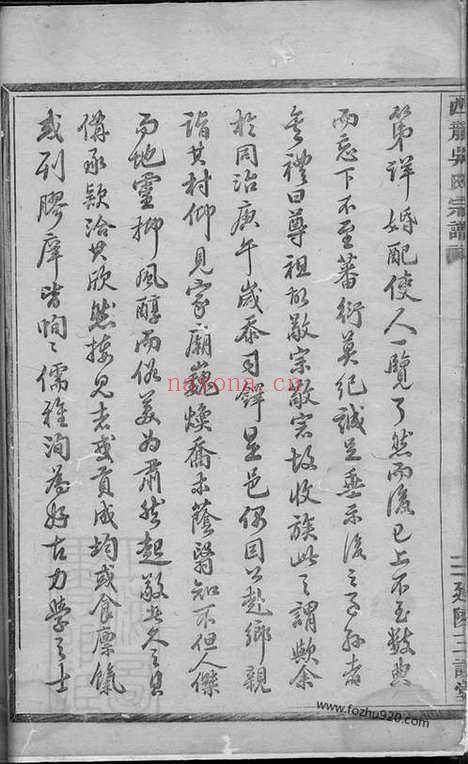 第詳婚配使人一覽了然而後已上不至數典
而忘下不至蕃衍莫紀誠足垂示後之子孫者
矣禮曰尊祖故敬宗敬宗故收族此之謂歟余
於同治庚午歲忝司鐸是邑偶因公赴鄉親
詣其村仰見家廟巍煥喬木蔭翳知不但人傑
而地靈抑風醇而俗美為肅然起敬者久之且
備承款洽其欣然接見者或貢成均或食廩餼
或列膠庠皆恂恂儒雅洵為好古力學之士
吳氏宗譜
www.fozhu920.com
nayona.cn